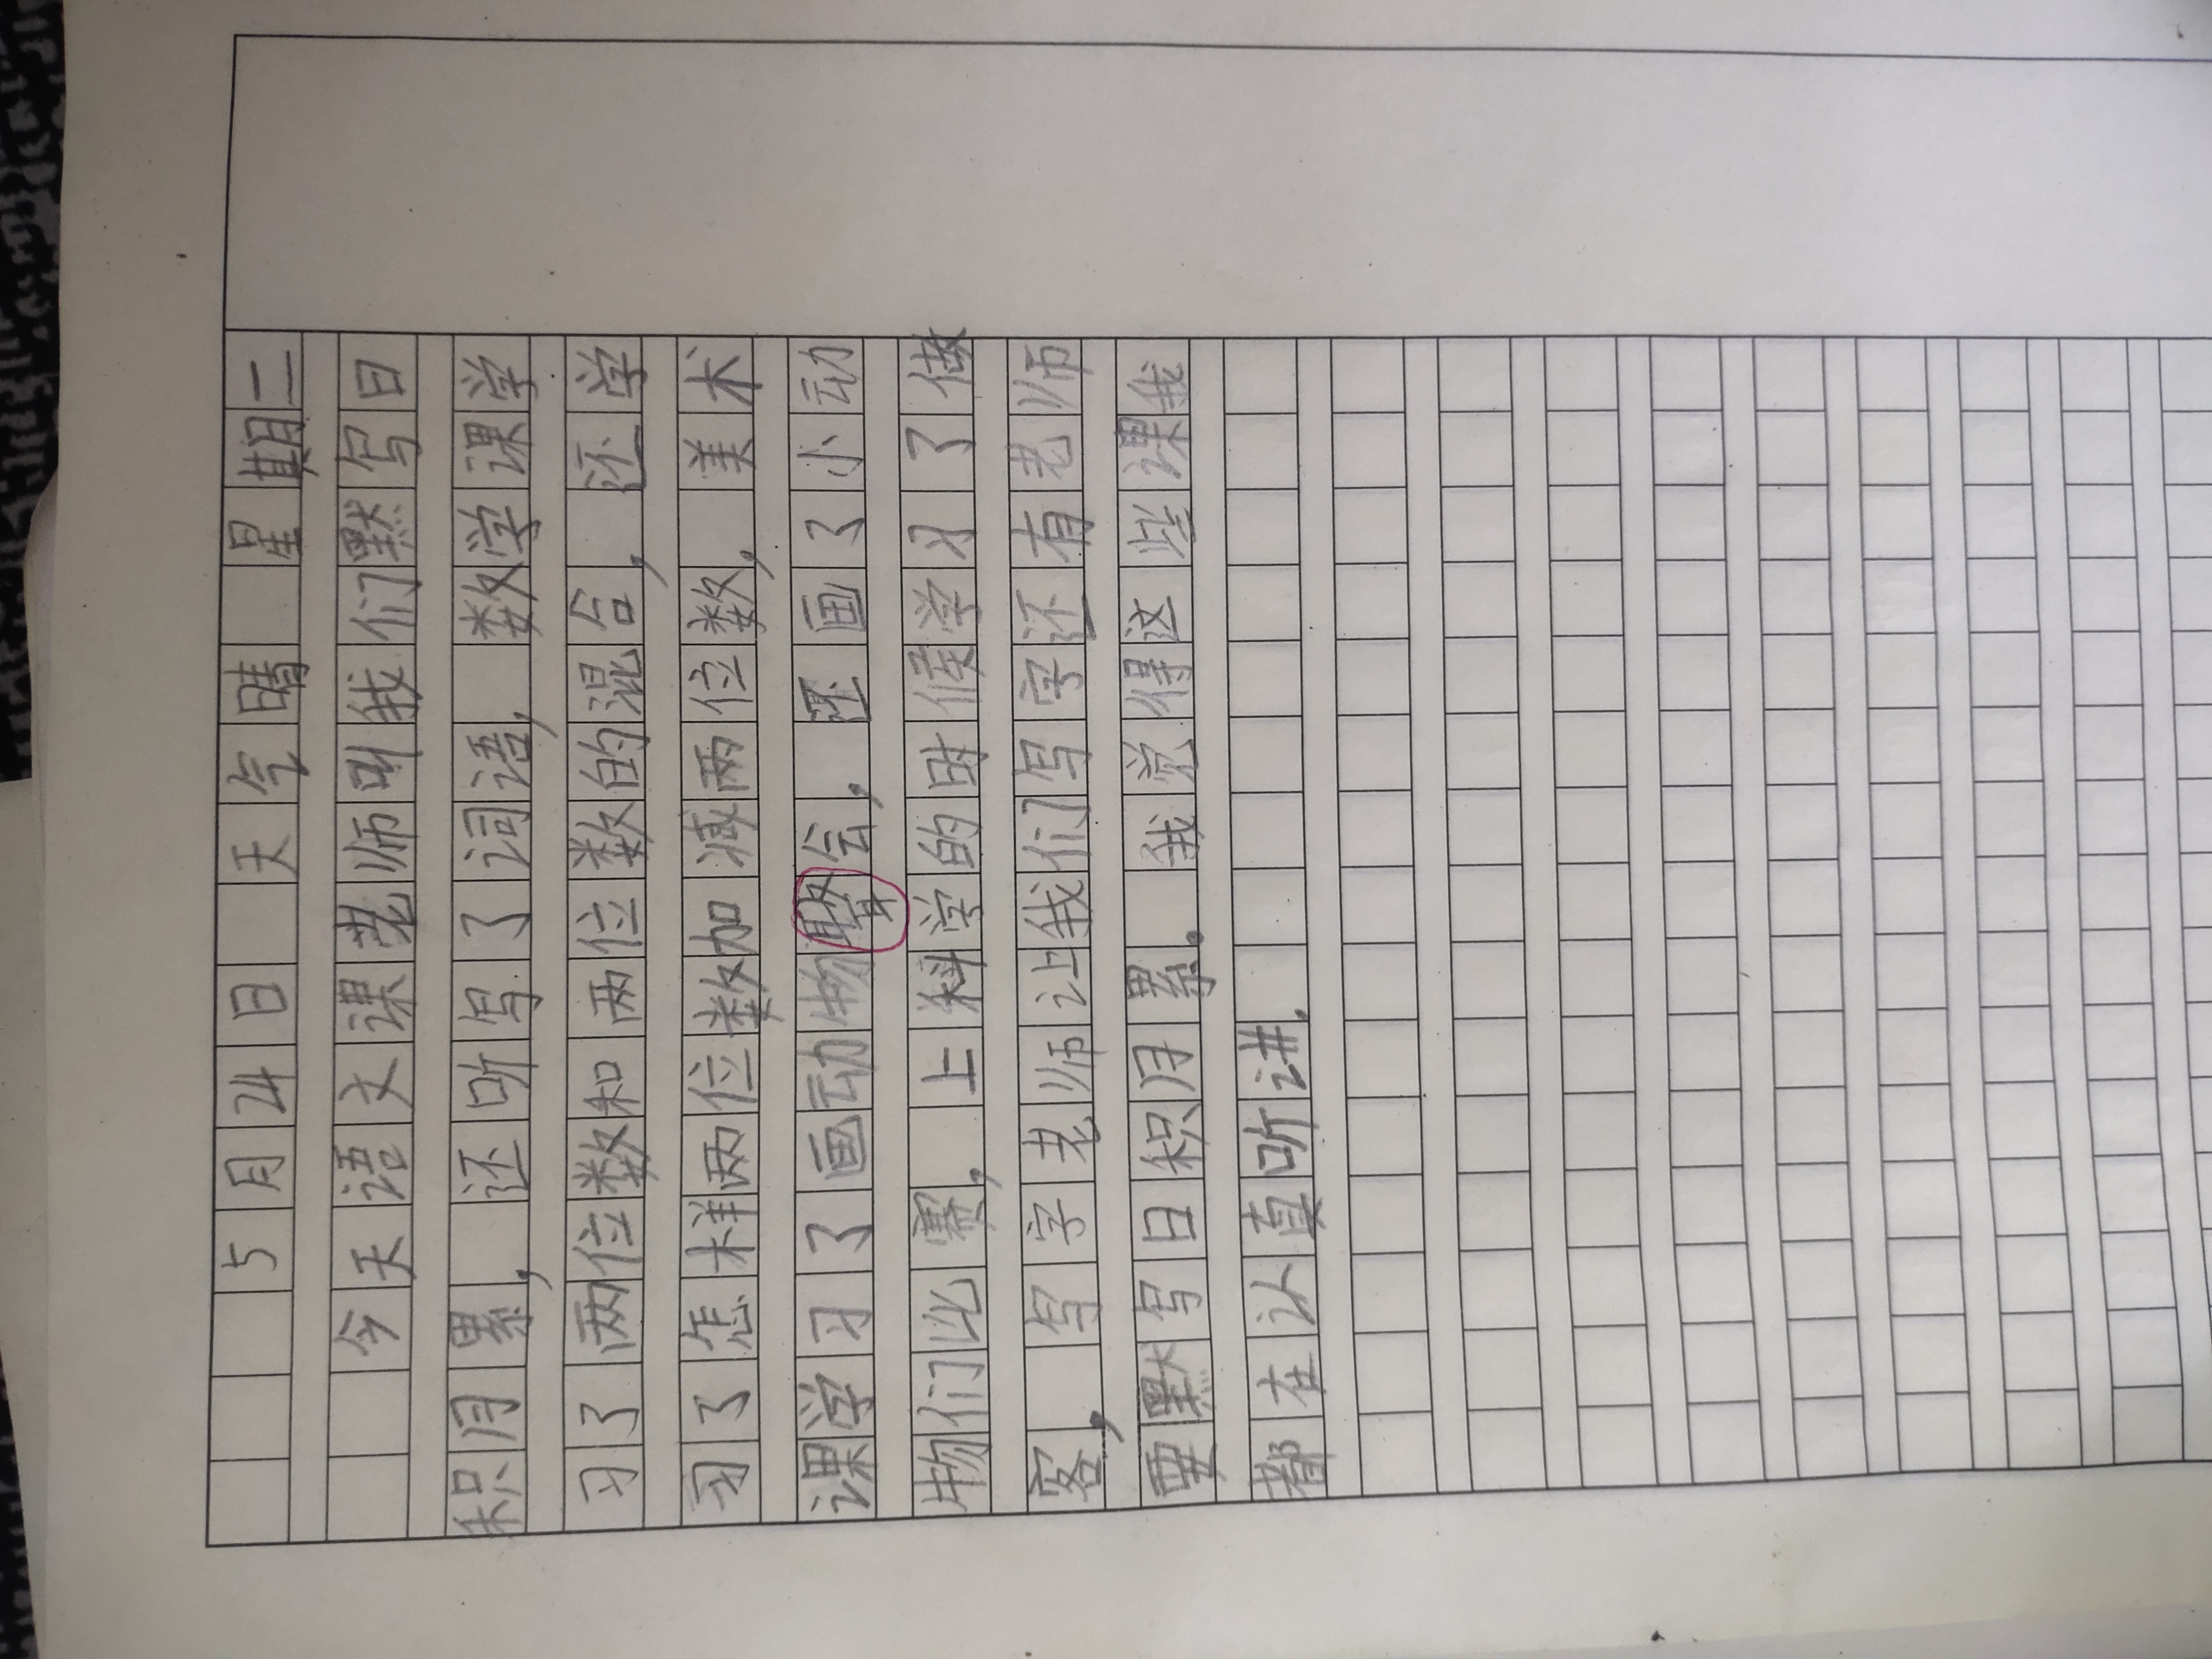 5月24日 天气晴 星期二
今天语文课老师叫我们默写日
积月累，还听写了词语，数学课学
习了两位数和两位数的混合，还学
习了怎样两位数加减两位数，美术
课学习了画动物聚会，还画了小动
物们比赛，上科学的时候学习了做
客，写字老师让我们写字还有老师
要默写日积月累。我觉得这些课我
都在认真听讲。